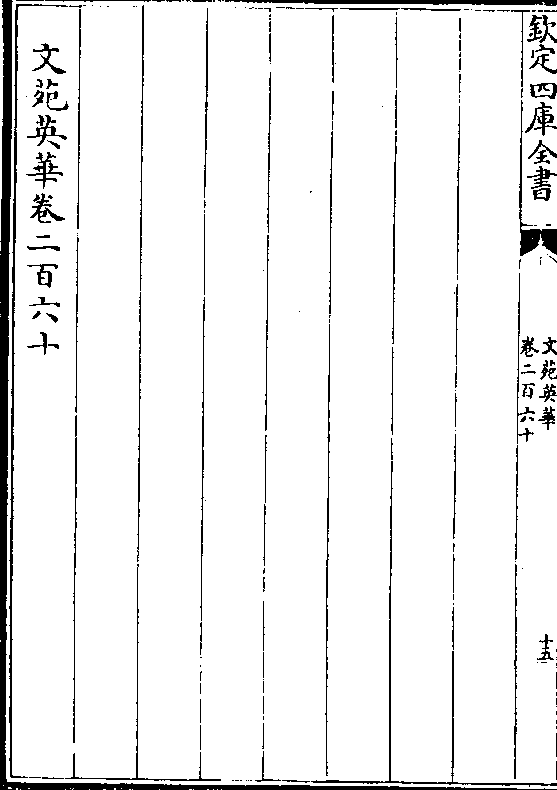 欽定四庫全書
文苑英華
卷二百六十
十五
文苑英華卷二百六十